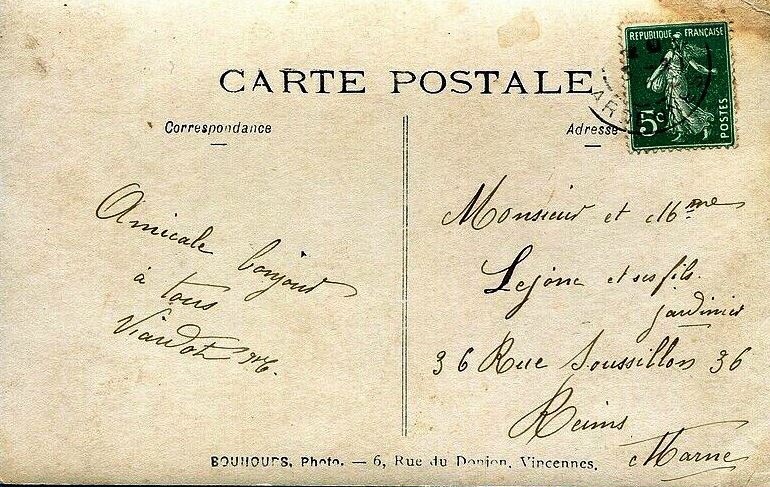 CARTE POSTALE
REPUBLIQUE FRANÇAISE
5c
POSTES
Correspondance
Adresse
Amicale bonjour
à tous
Viardot
Monsieur et Mme
Lejone et ses fils
jardinier
36 Rue Soussillon 36
Reims
Marne
BOUHOURS, Photo. — 6, Rue du Donjon, Vincennes.